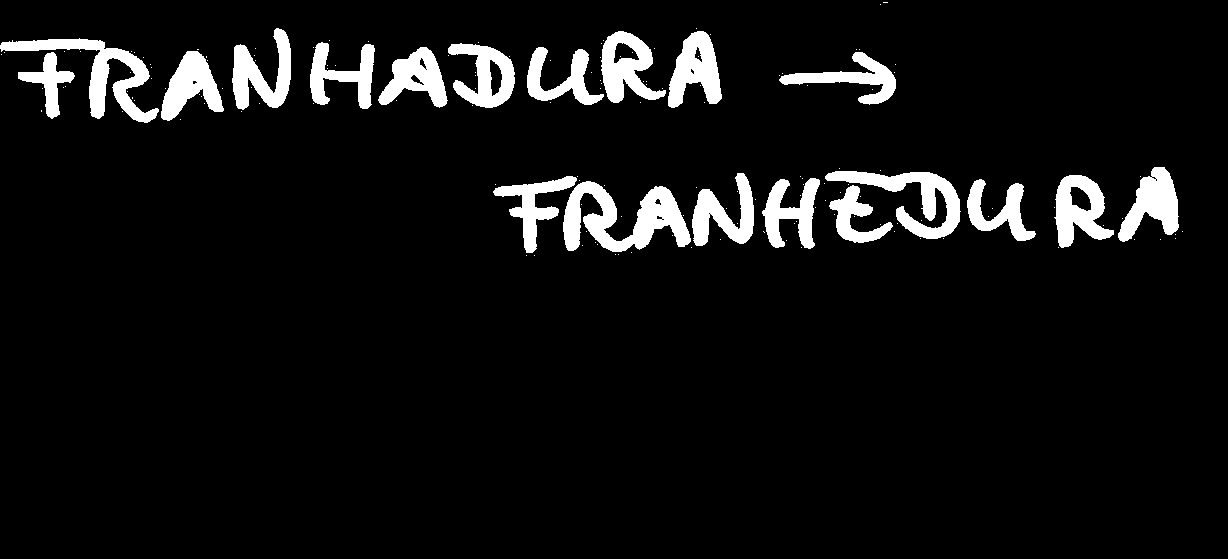 FRANHADURA →
FRANHEDURA